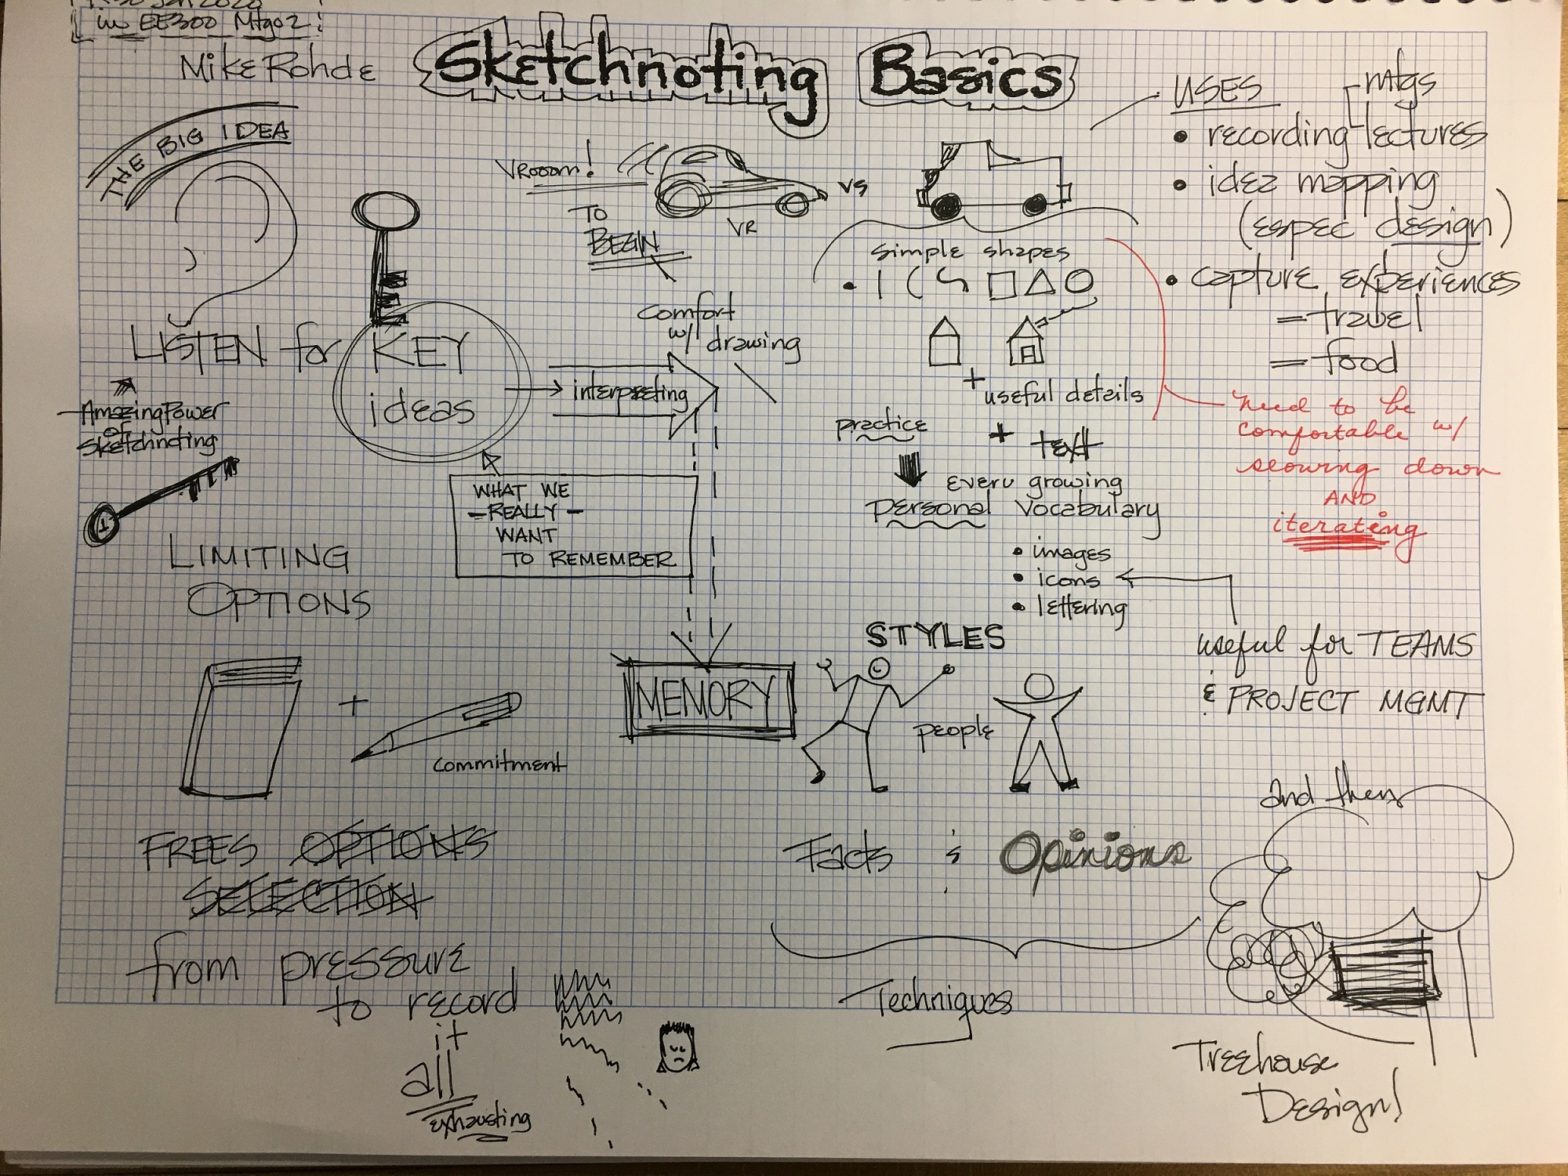 Jan 2020
in EE300 Mtg02
Mike Rohde
Sketchnoting Basics
THE BIG IDEA
LISTEN for KEY
ideas
interpreting
Amazing Power
of
Sketchnoting
WHAT WE
- REALLY -
WANT
TO REMEMBER
MEMORY
LIMITING
OPTIONS
+
commitment
FREES OPTIONS
SELECTION
from pressure
to record
it
all
exhausting
VRooom!
VR
vs
TO
BEGIN
comfort
w/ drawing
simple shapes
+
useful details
+ text
practice
every growing
personal vocabulary
• images
• icons
• lettering
STYLES
people
Facts & Opinions
Techniques
USES
mtgs
• recording lectures
• idea mapping
(espec design)
• capture experiences
— travel
= food
need to be
comfortable w/
slowing down
AND
iterating
useful for TEAMS
& PROJECT MGMT
and then
Treehouse
Design!